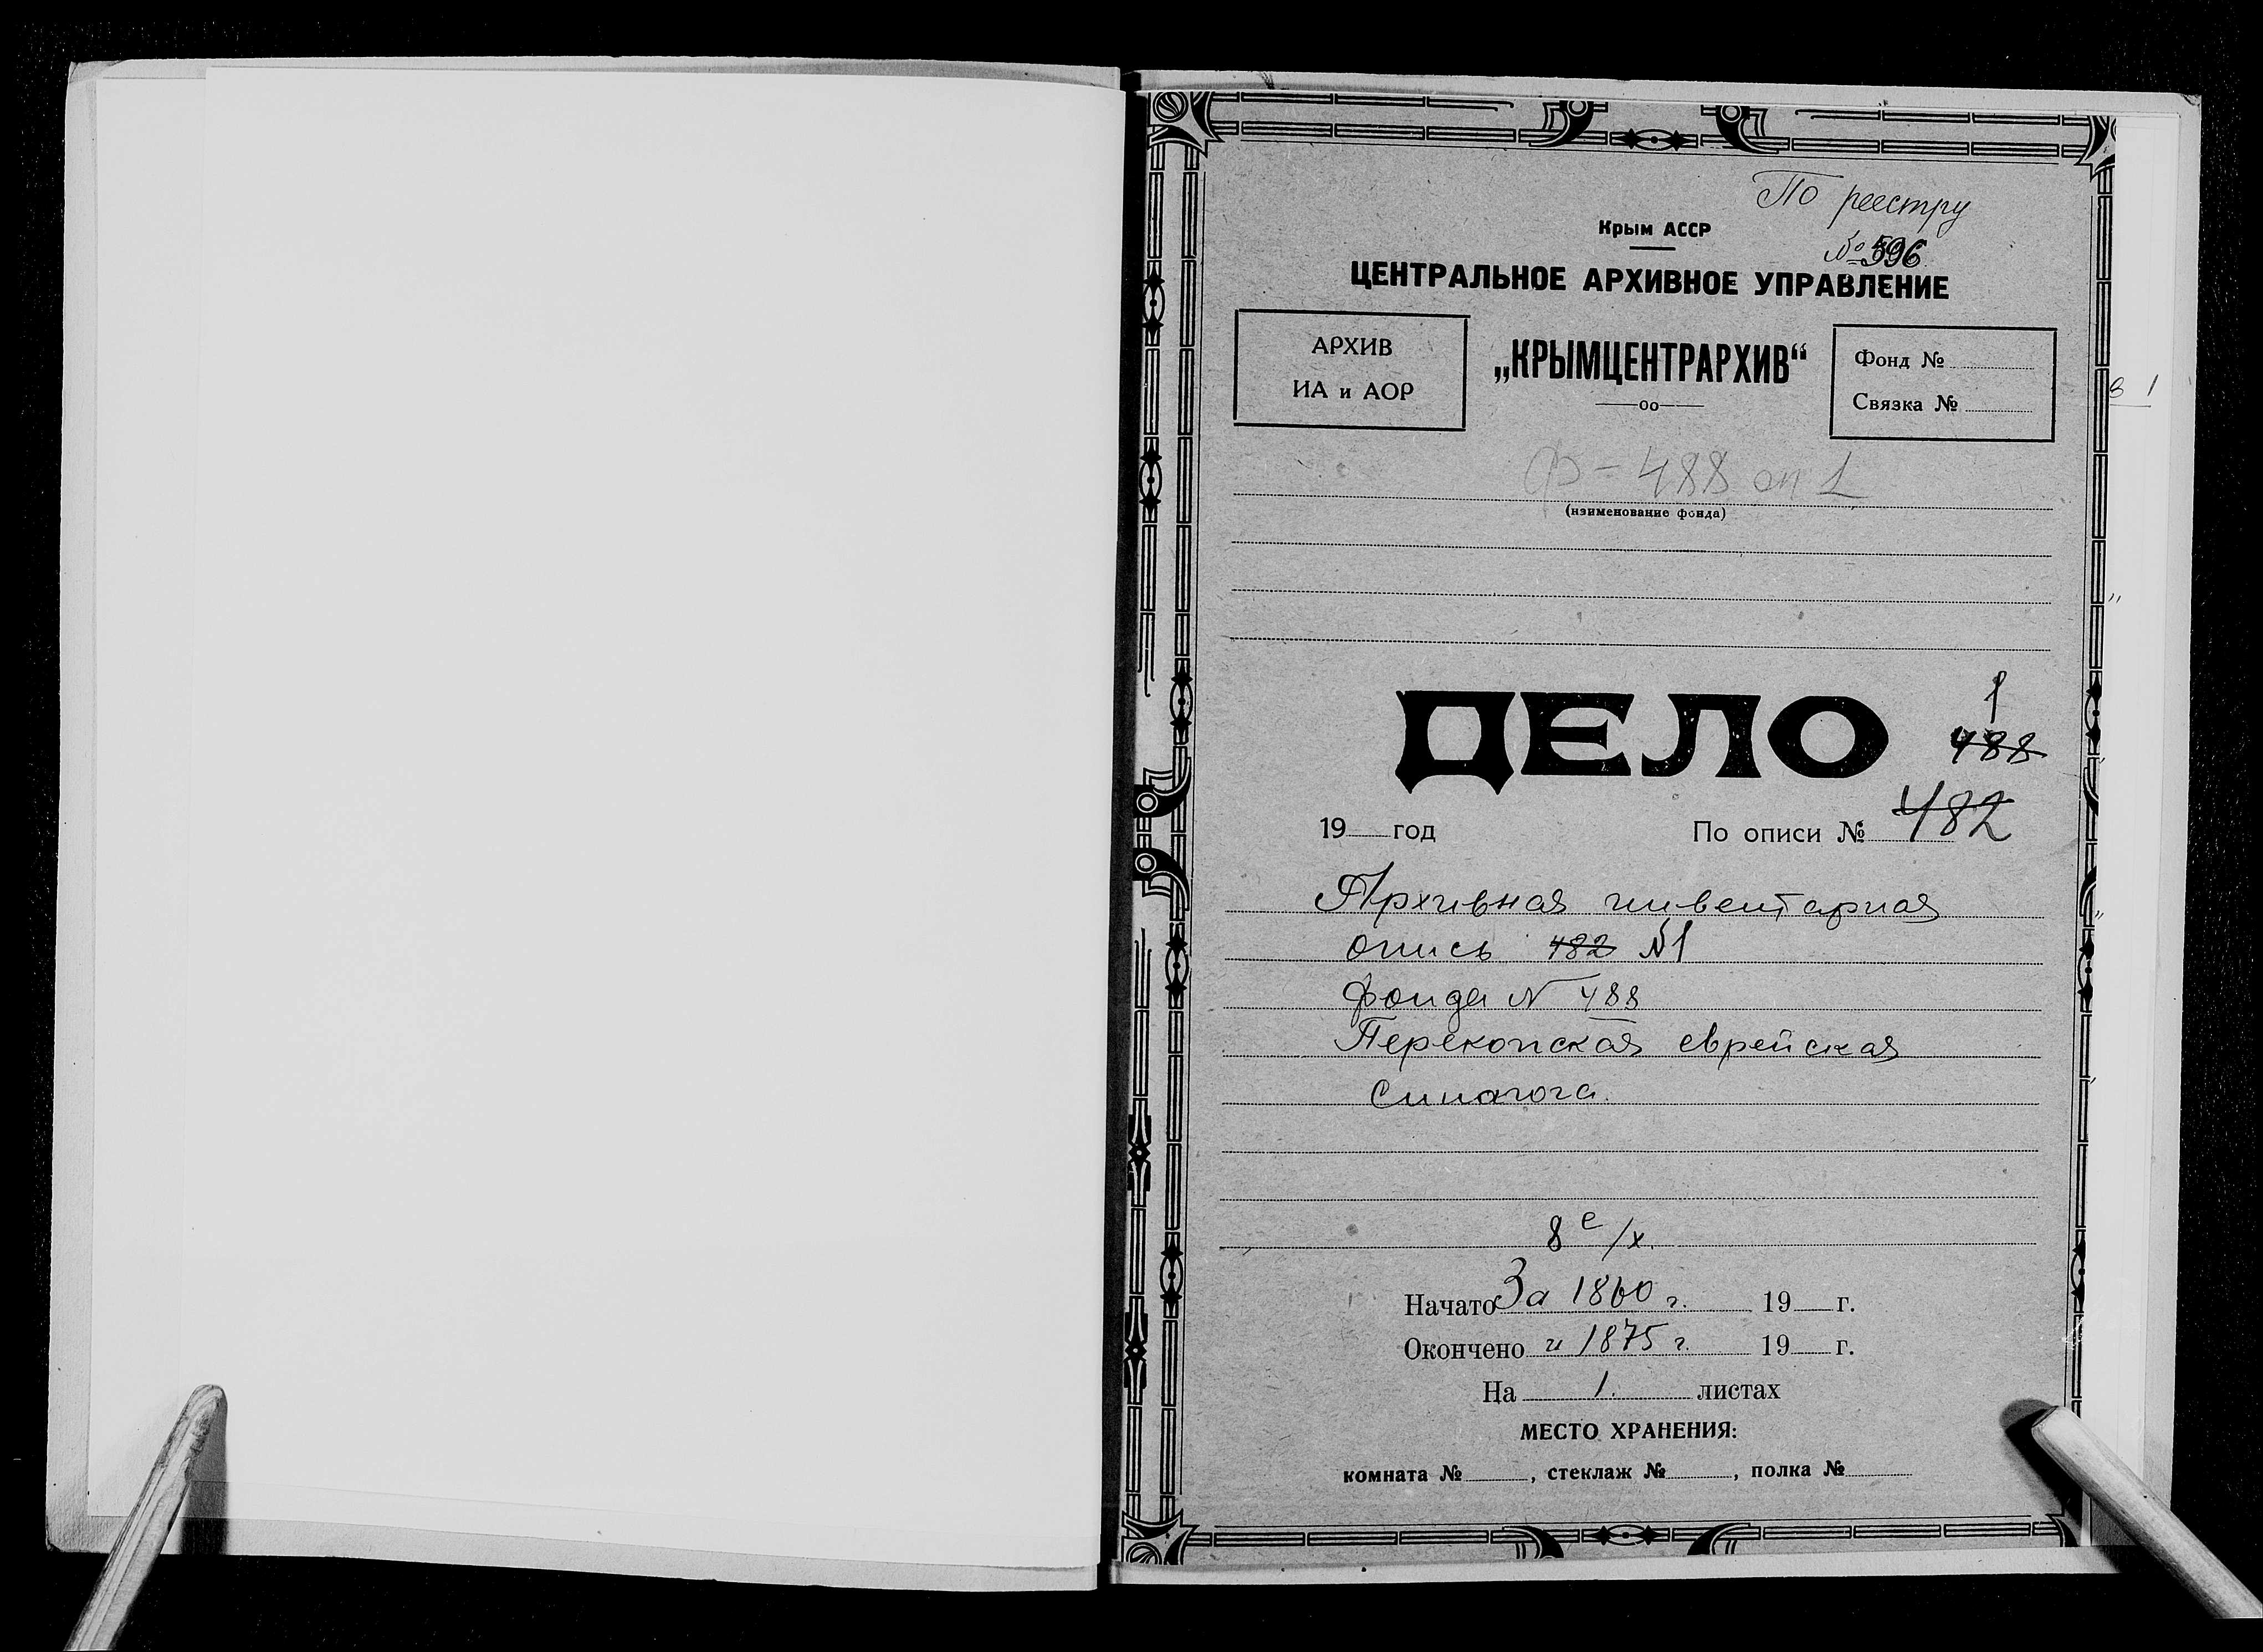 По реестру
Крым АССР
№ 596
ЦЕНТРАЛЬНОЕ АРХИВНОЕ УПРАВЛЕНИЕ
АРХИВ
ИА и АОР
„КРЫМЦЕНТРАРХИВ“
Фонд №
Связка №
Ф-488 оп 1
(наименование фонда)
ДЕЛО
1
488
19 год
По описи № 482
Архивная инвентарная
опись 482 №1
фонда N 488
Перекопская еврейская
Синагога.
8 е/х.
Начато За 1860 г. 19 г.
Окончено и 1875 г. 19 г.
На 1. листах
МЕСТО ХРАНЕНИЯ:
комната № , стеклаж № , полка №